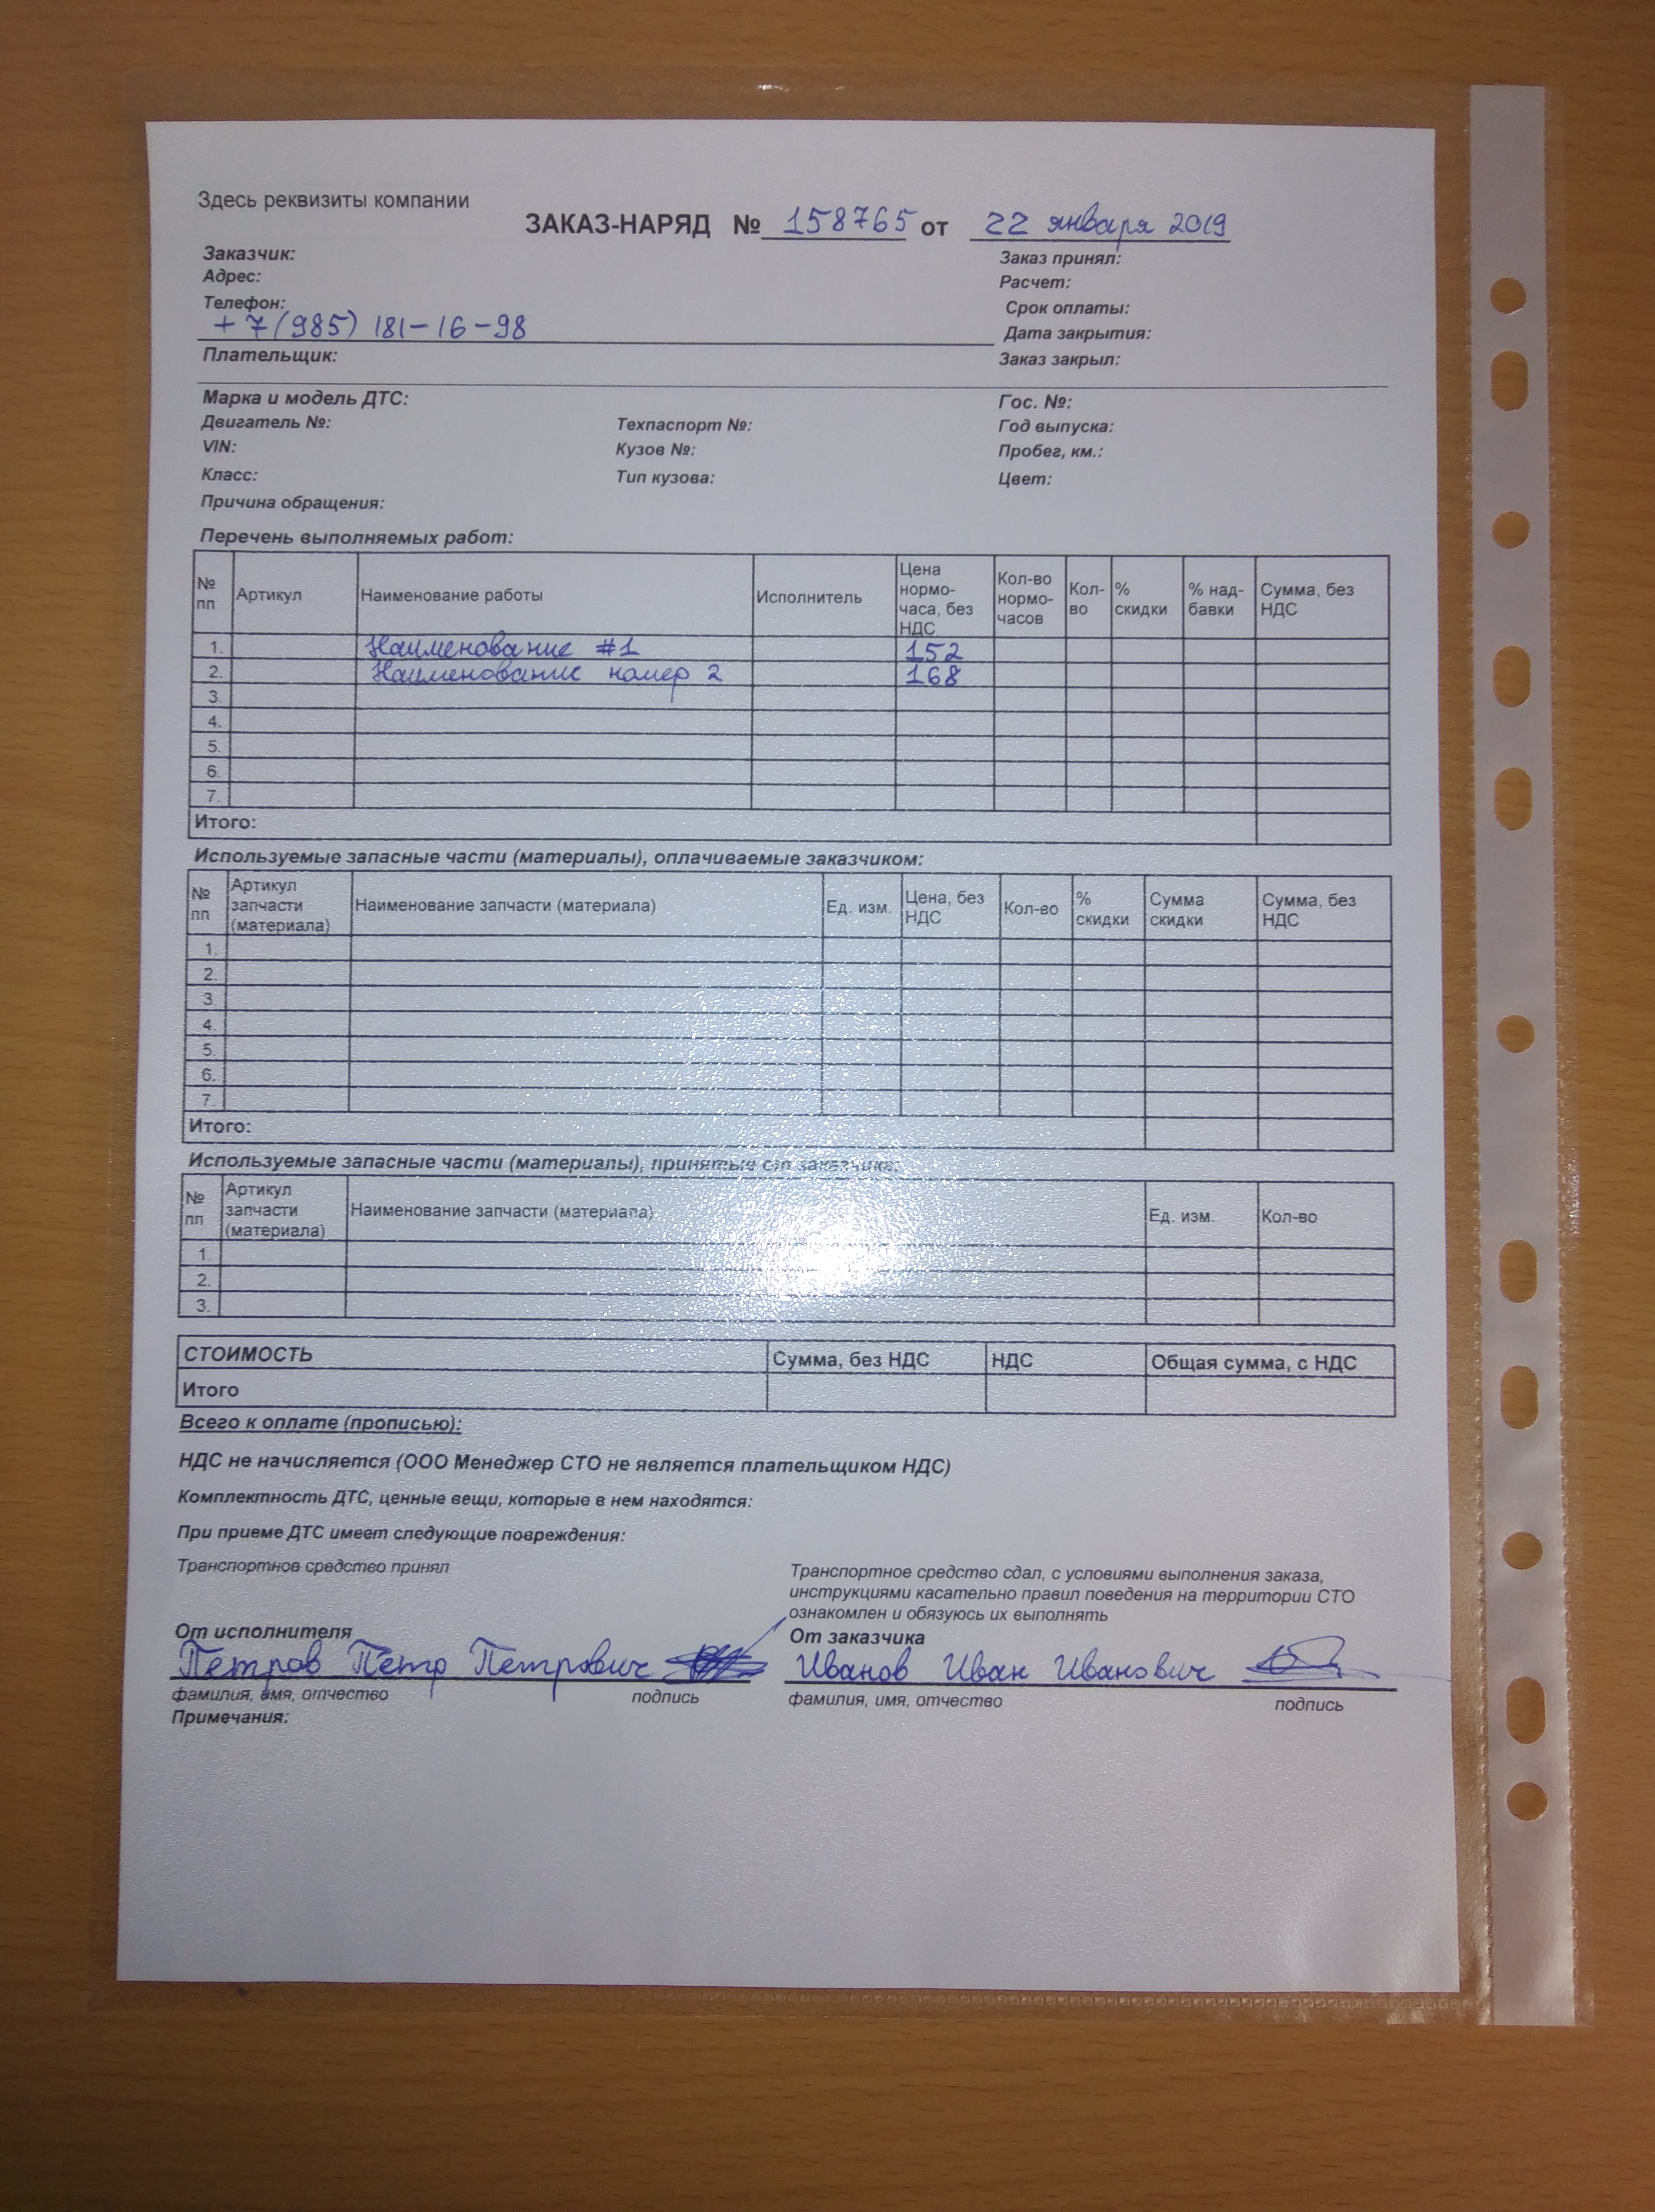 Здесь реквизиты компании
ЗАКАЗ-НАРЯД № 158765 от 22 января 2019
Заказчик: Заказ принял:
Адрес: Расчет:
Телефон: Срок оплаты:
+7(985) 181-16-98 Дата закрытия:
Плательщик: Заказ закрыл:
Марка и модель ДТС: Гос. №:
Двигатель №: Техпаспорт №: Год выпуска:
VIN: Кузов №: Пробег, км.:
Класс: Тип кузова: Цвет:
Причина обращения:
Перечень выполняемых работ:
№ пп Артикул Наименование работы Исполнитель Цена нормо-часа, без НДС Кол-во нормо-часов Кол-во % скидки % над-бавки Сумма, без НДС
1. Наименование #1 152
2. Наименование номер 2 168
3.
4.
5.
6.
7.
Итого:
Используемые запасные части (материалы), оплачиваемые заказчиком:
№ пп Артикул запчасти (материала) Наименование запчасти (материала) Ед. изм. Цена, без НДС Кол-во % скидки Сумма скидки Сумма, без НДС
1.
2.
3
4.
5.
6.
7.
Итого:
Используемые запасные части (материалы), принятые от заказчика:
№ пп Артикул запчасти (материала) Наименование запчасти (материала) Ед. изм. Кол-во
1.
2.
3.
СТОИМОСТЬ Сумма, без НДС НДС Общая сумма, с НДС
Итого
Всего к оплате (прописью):
НДС не начисляется (ООО Менеджер СТО не является плательщиком НДС)
Комплектность ДТС, ценные вещи, которые в нем находятся:
При приеме ДТС имеет следующие повреждения:
Транспортное средство принял
Транспортное средство сдал, с условиями выполнения заказа,
инструкциями касательно правил поведения на территории СТО
ознакомлен и обязуюсь их выполнять
От исполнителя От заказчика
Петров Пётр Петрович Иванов Иван Иванович
фамилия, имя, отчество подпись фамилия, имя, отчество подпись
Примечания: